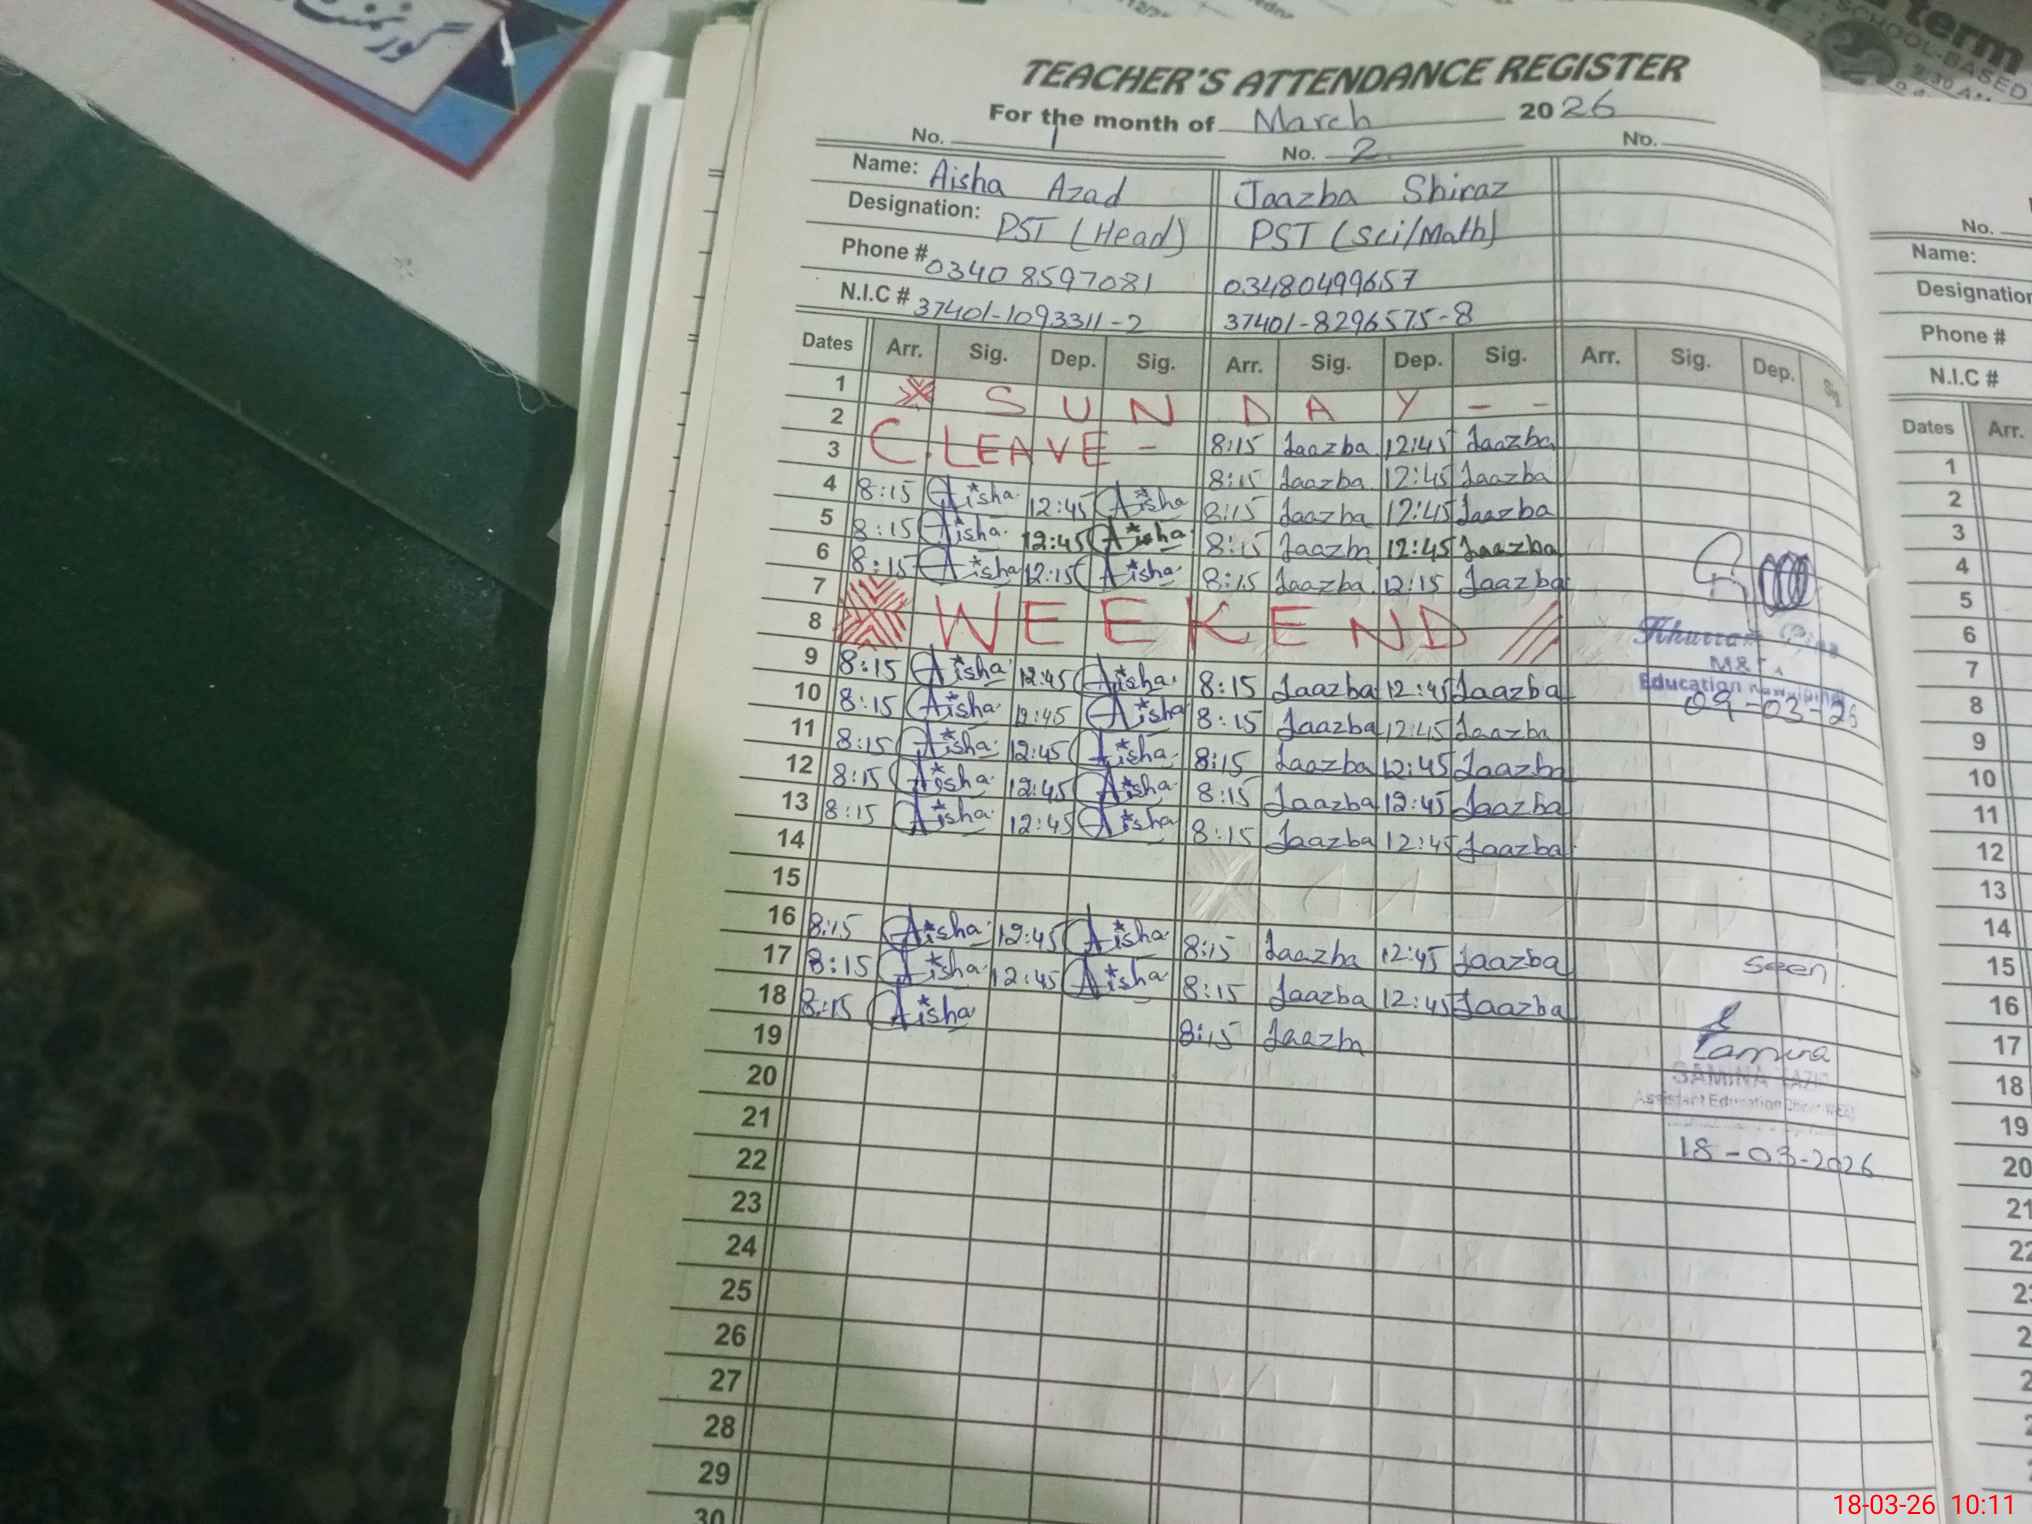 گورنمنٹ
term
SCHOOL-BASED
TEACHER'S ATTENDANCE REGISTER
For the month of March 2026
No. 1 No. 2 No.
Name: Aisha Azad Jaazba Shiraz
Designation: PST (Head) PST (Sci/Math)
Phone # 03408597081 03480499657
N.I.C # 37401-1093311-2 37401-8296575-8
Dates Arr. Sig. Dep. Sig. Arr. Sig. Dep. Sig. Arr. Sig. Dep. Sig.
1 S U N D A Y - -
2 C. LEAVE - 8:15 Jaazba 12:45 Jaazba
3 8:15 Jaazba 12:45 Jaazba
4 8:15 Aisha 12:45 Aisha 8:15 Jaazba 12:45 Jaazba
5 8:15 Aisha 12:45 Aisha 8:15 Jaazba 12:45 Jaazba
6 8:15 Aisha 12:15 Aisha 8:15 Jaazba 12:15 Jaazba
7 W E E K E N D
8
9 8:15 Aisha 12:45 Aisha 8:15 Jaazba 12:45 Jaazba
10 8:15 Aisha 12:45 Aisha 8:15 Jaazba 12:45 Jaazba
11 8:15 Aisha 12:45 Aisha 8:15 Jaazba 12:45 Jaazba
12 8:15 Aisha 12:45 Aisha 8:15 Jaazba 12:45 Jaazba
13 8:15 Aisha 12:45 Aisha 8:15 Jaazba 12:45 Jaazba
14
15
16 8:15 Aisha 12:45 Aisha 8:15 Jaazba 12:45 Jaazba
17 8:15 Aisha 12:45 Aisha 8:15 Jaazba 12:45 Jaazba
18 8:15 Aisha 8:15 Jaazba
19
20
21
22
23
24
25
26
27
28
29
30
Education
09-03-26
seen
Samina
SAMINA
Assistant Education
18-03-2026
No.
Name:
Designation
Phone #
N.I.C #
Dates Arr.
1
2
3
4
5
6
7
8
9
10
11
12
13
14
15
16
17
18
19
20
21
22
18-03-26 10:11